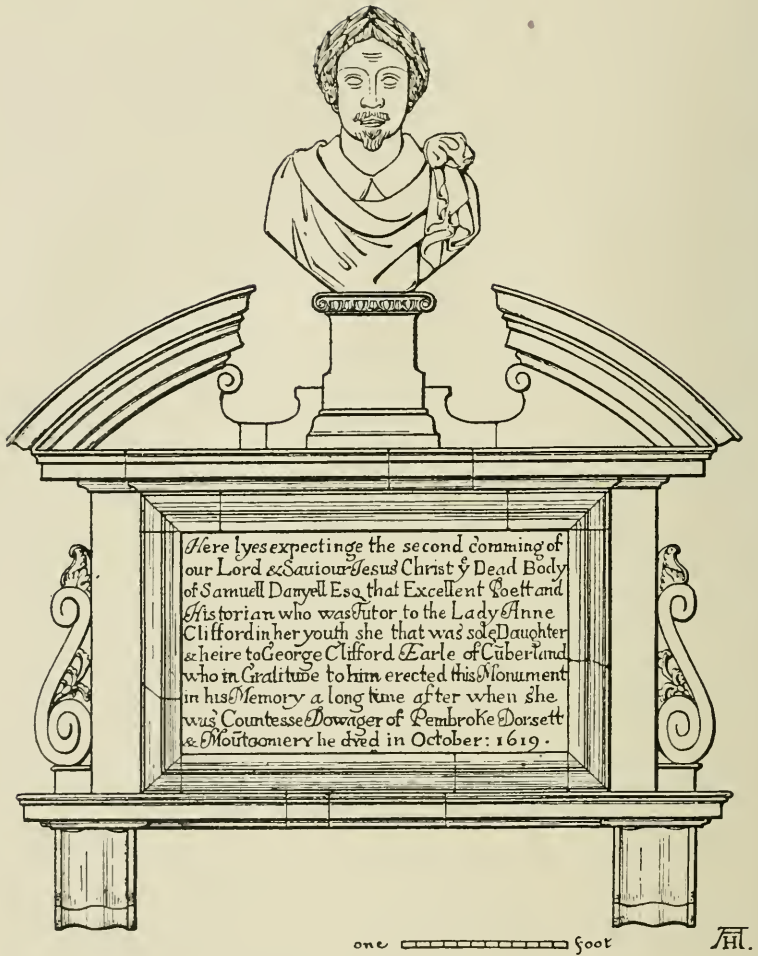 Here lyes expectinge the second comming of
our Lord & Saviour Jesus Christ yͤ Dead Body
of Samuell Danyell Esq that Excellent Poett and
Historian who was Tutor to the Lady Anne
Clifford in her youth she that was sole Daughter
& heire to George Clifford Earle of Cūberland
who in Gratitude to him erected this Monument
in his Memory a long time after when she
was Countesse Dowager of Pembroke Dorsett
& Moūtgomery he dyed in October: 1619.
one foot